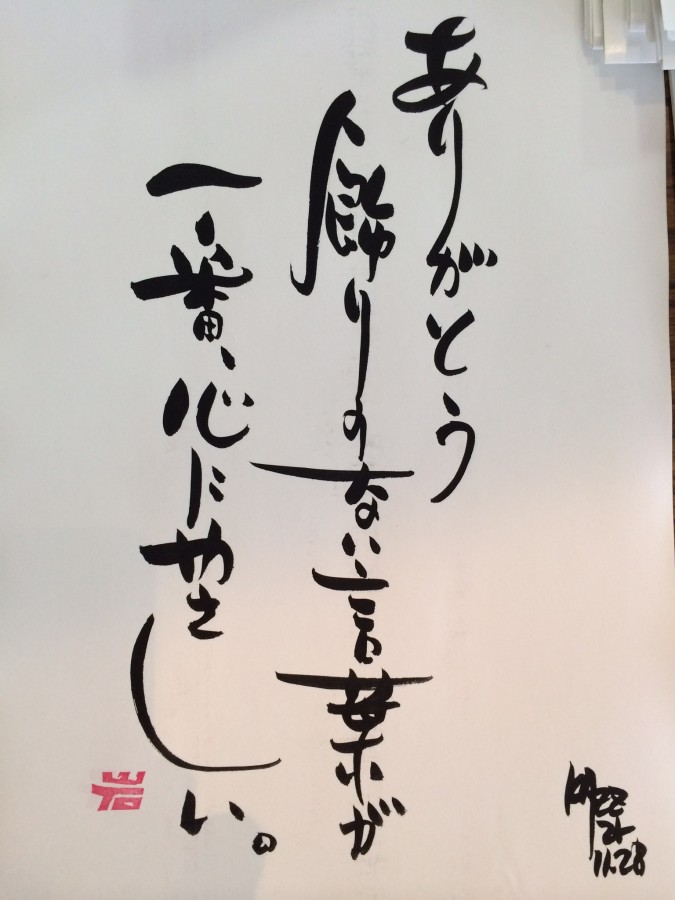 ありがとう
飾りのない言葉が
一番、心にやさしい。
岩
11.28